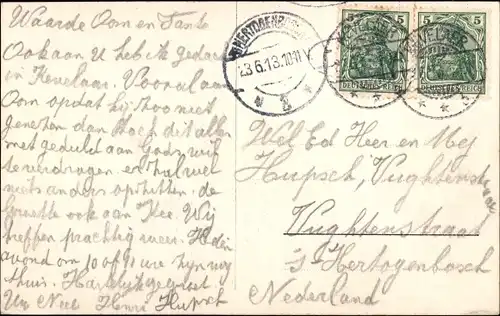 Waarde Oom en Tante
Ook aan U heb ik gedacht
in Kevelaar. Vooral aan
Oom opdat hij
genezen dan toch dit alles
met geduld aan Gods wil
te verdragen er zal wel
niets anders opzitten. de
groette ook aan Kee. Wij
treffen prachtig weer. Heden
avond om 10 of 11 ure zijn wij
thuis. Hartelijk gegroet
Uw Neef Henri Hupsch
'S HERTOGENBOSCH
23.6.13.10-11 V
N 2
5 5
5 5
DEUTSCHES REICH
DEUTSCHES REICH
KEVELAER
KEVELAER
Wel Ed Heer en Mej
Hupsch, Vughtenstraat
Vughtenstraat
's Hertogenbosch
Nederland